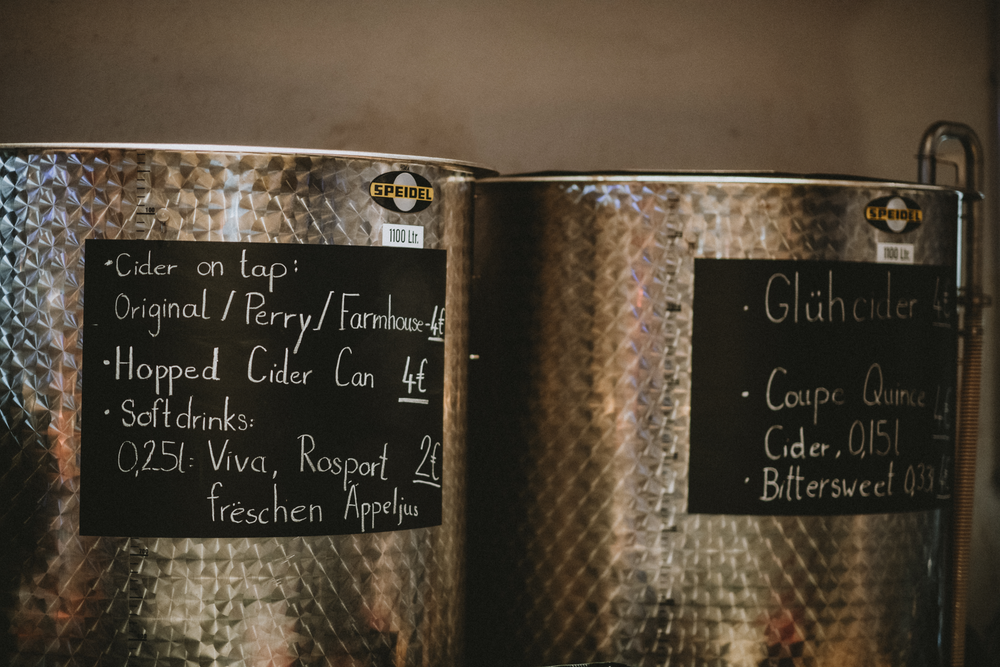 SPEIDEL
1100 Ltr.
• Cider on tap:
Original / Perry / Farmhouse - 4€
• Hopped Cider Can 4€
• Softdrinks:
0,25l: Viva, Rosport 2€
frëschen Äppeljus
SPEIDEL
1100 Ltr.
• Glühcider 4€
• Coupe Quince 4€
Cider, 0,15l
• Bittersweet 0,33l 4€